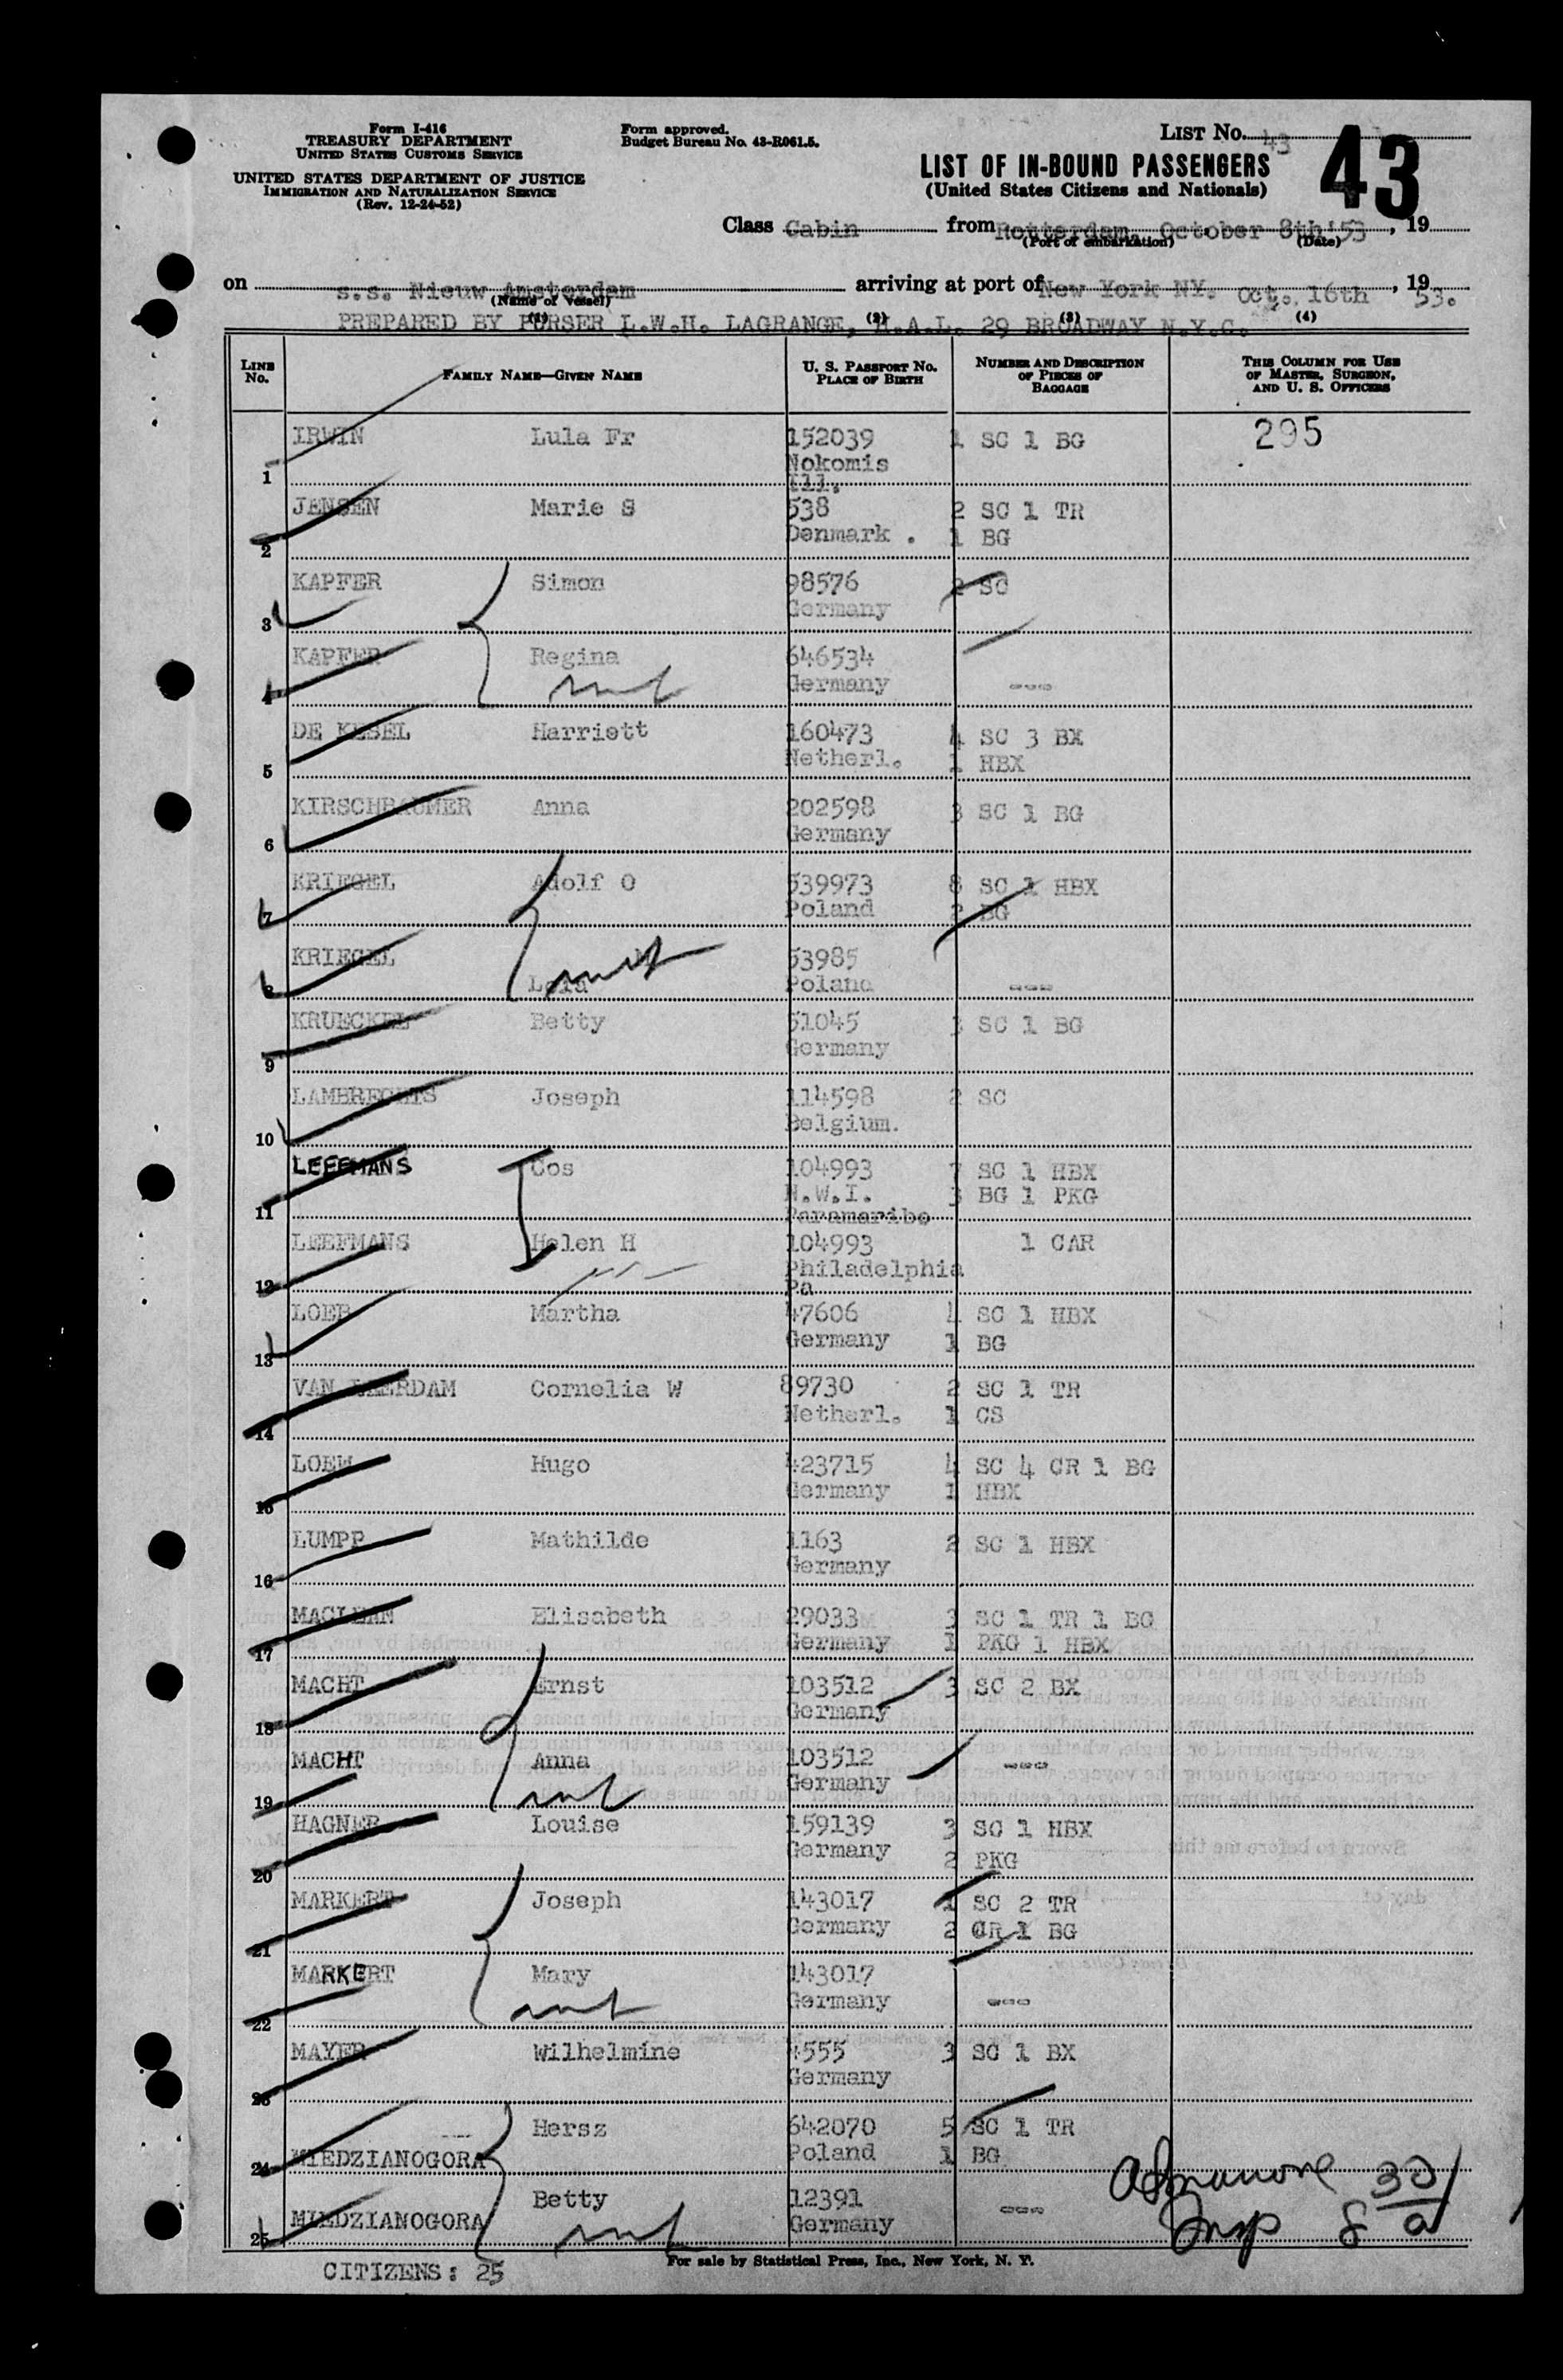 Form I-416
TREASURY DEPARTMENT
UNITED STATES CUSTOMS SERVICE
UNITED STATES DEPARTMENT OF JUSTICE
IMMIGRATION AND NATURALIZATION SERVICE
(Rev. 12-24-52)
Form approved.
Budget Bureau No. 43-R061.5.
LIST No. 43
43
LIST OF IN-BOUND PASSENGERS
(United States Citizens and Nationals)
Class Cabin from Rotterdam, October 8th'53, 19
(Port of embarkation) (Date)
on s.s. Nieuw Amsterdam arriving at port of New York NY. Oct. 16th, 1953.
(Name of vessel)
PREPARED BY PURSER L.W.H. LAGRANGE, H.A.L. 29 BROADWAY N.Y.C.
(1) (2) (3) (4)
LINE No. FAMILY NAME—GIVEN NAME U. S. PASSPORT No. PLACE OF BIRTH NUMBER AND DESCRIPTION OF PIECES OF BAGGAGE THIS COLUMN FOR USE OF MASTER, SURGEON, AND U. S. OFFICERS
1 IRWIN Lula Fr 152039 1 SC 1 BG 295
Nokomis
Ill.
2 JENSEN Marie S 538 2 SC 1 TR
Denmark . 1 BG
3 KAPFER Simon 98576 2 SC
Germany
4 KAPFER Regina 646534
Germany ---
5 DE KESEL Harriett 160473 4 SC 3 BX
Netherl. 1 HBX
6 KIRSCHBAUMER Anna 202598 3 SC 1 BG
Germany
7 KRIEGEL Adolf O 539973 8 SC 1 HBX
Poland 2 BG
8 KRIEGEL 53985
Lola Poland ---
9 KRUECKEL Betty 51045 3 SC 1 BG
Germany
10 LAMBRECHTS Joseph 114598 2 SC
Belgium.
11 LEEFMANS Cos 104993 7 SC 1 HBX
N.W.I. 3 BG 1 PKG
Paramaribo
12 LEEFMANS Helen H 104993 1 CAR
Philadelphia
Pa
13 LOEB Martha 47606 4 SC 1 HBX
Germany 1 BG
14 VAN LEERDAM Cornelia W 89730 2 SC 1 TR
Netherl. 1 CS
15 LOEW Hugo 423715 4 SC 4 CR 1 BG
Germany 1 HBX
16 LUMPP Mathilde 1163 2 SC 1 HBX
Germany
17 MACLEAN Elisabeth 29033 3 SC 1 TR 1 BG
Germany 1 PKG 1 HBX
18 MACHT Ernst 103512 3 SC 2 BX
Germany
19 MACHT Anna 103512 ---
Germany
20 HAGNER Louise 159139 3 SC 1 HBX
Germany 2 PKG
21 MARKERT Joseph 143017 1 SC 2 TR
Germany 2 CR 1 BG
22 MARKERT Mary 143017
Germany ---
23 MAYER Wilhelmine 4555 3 SC 1 BX
Germany
24 Hersz 642070 5 SC 1 TR
MIEDZIANOGORA Poland 1 BG
25 Betty 12391 ---
MIEDZIANOGORA Germany
Insp 8
30
a
For sale by Statistical Press, Inc., New York, N. Y.
CITIZENS: 25